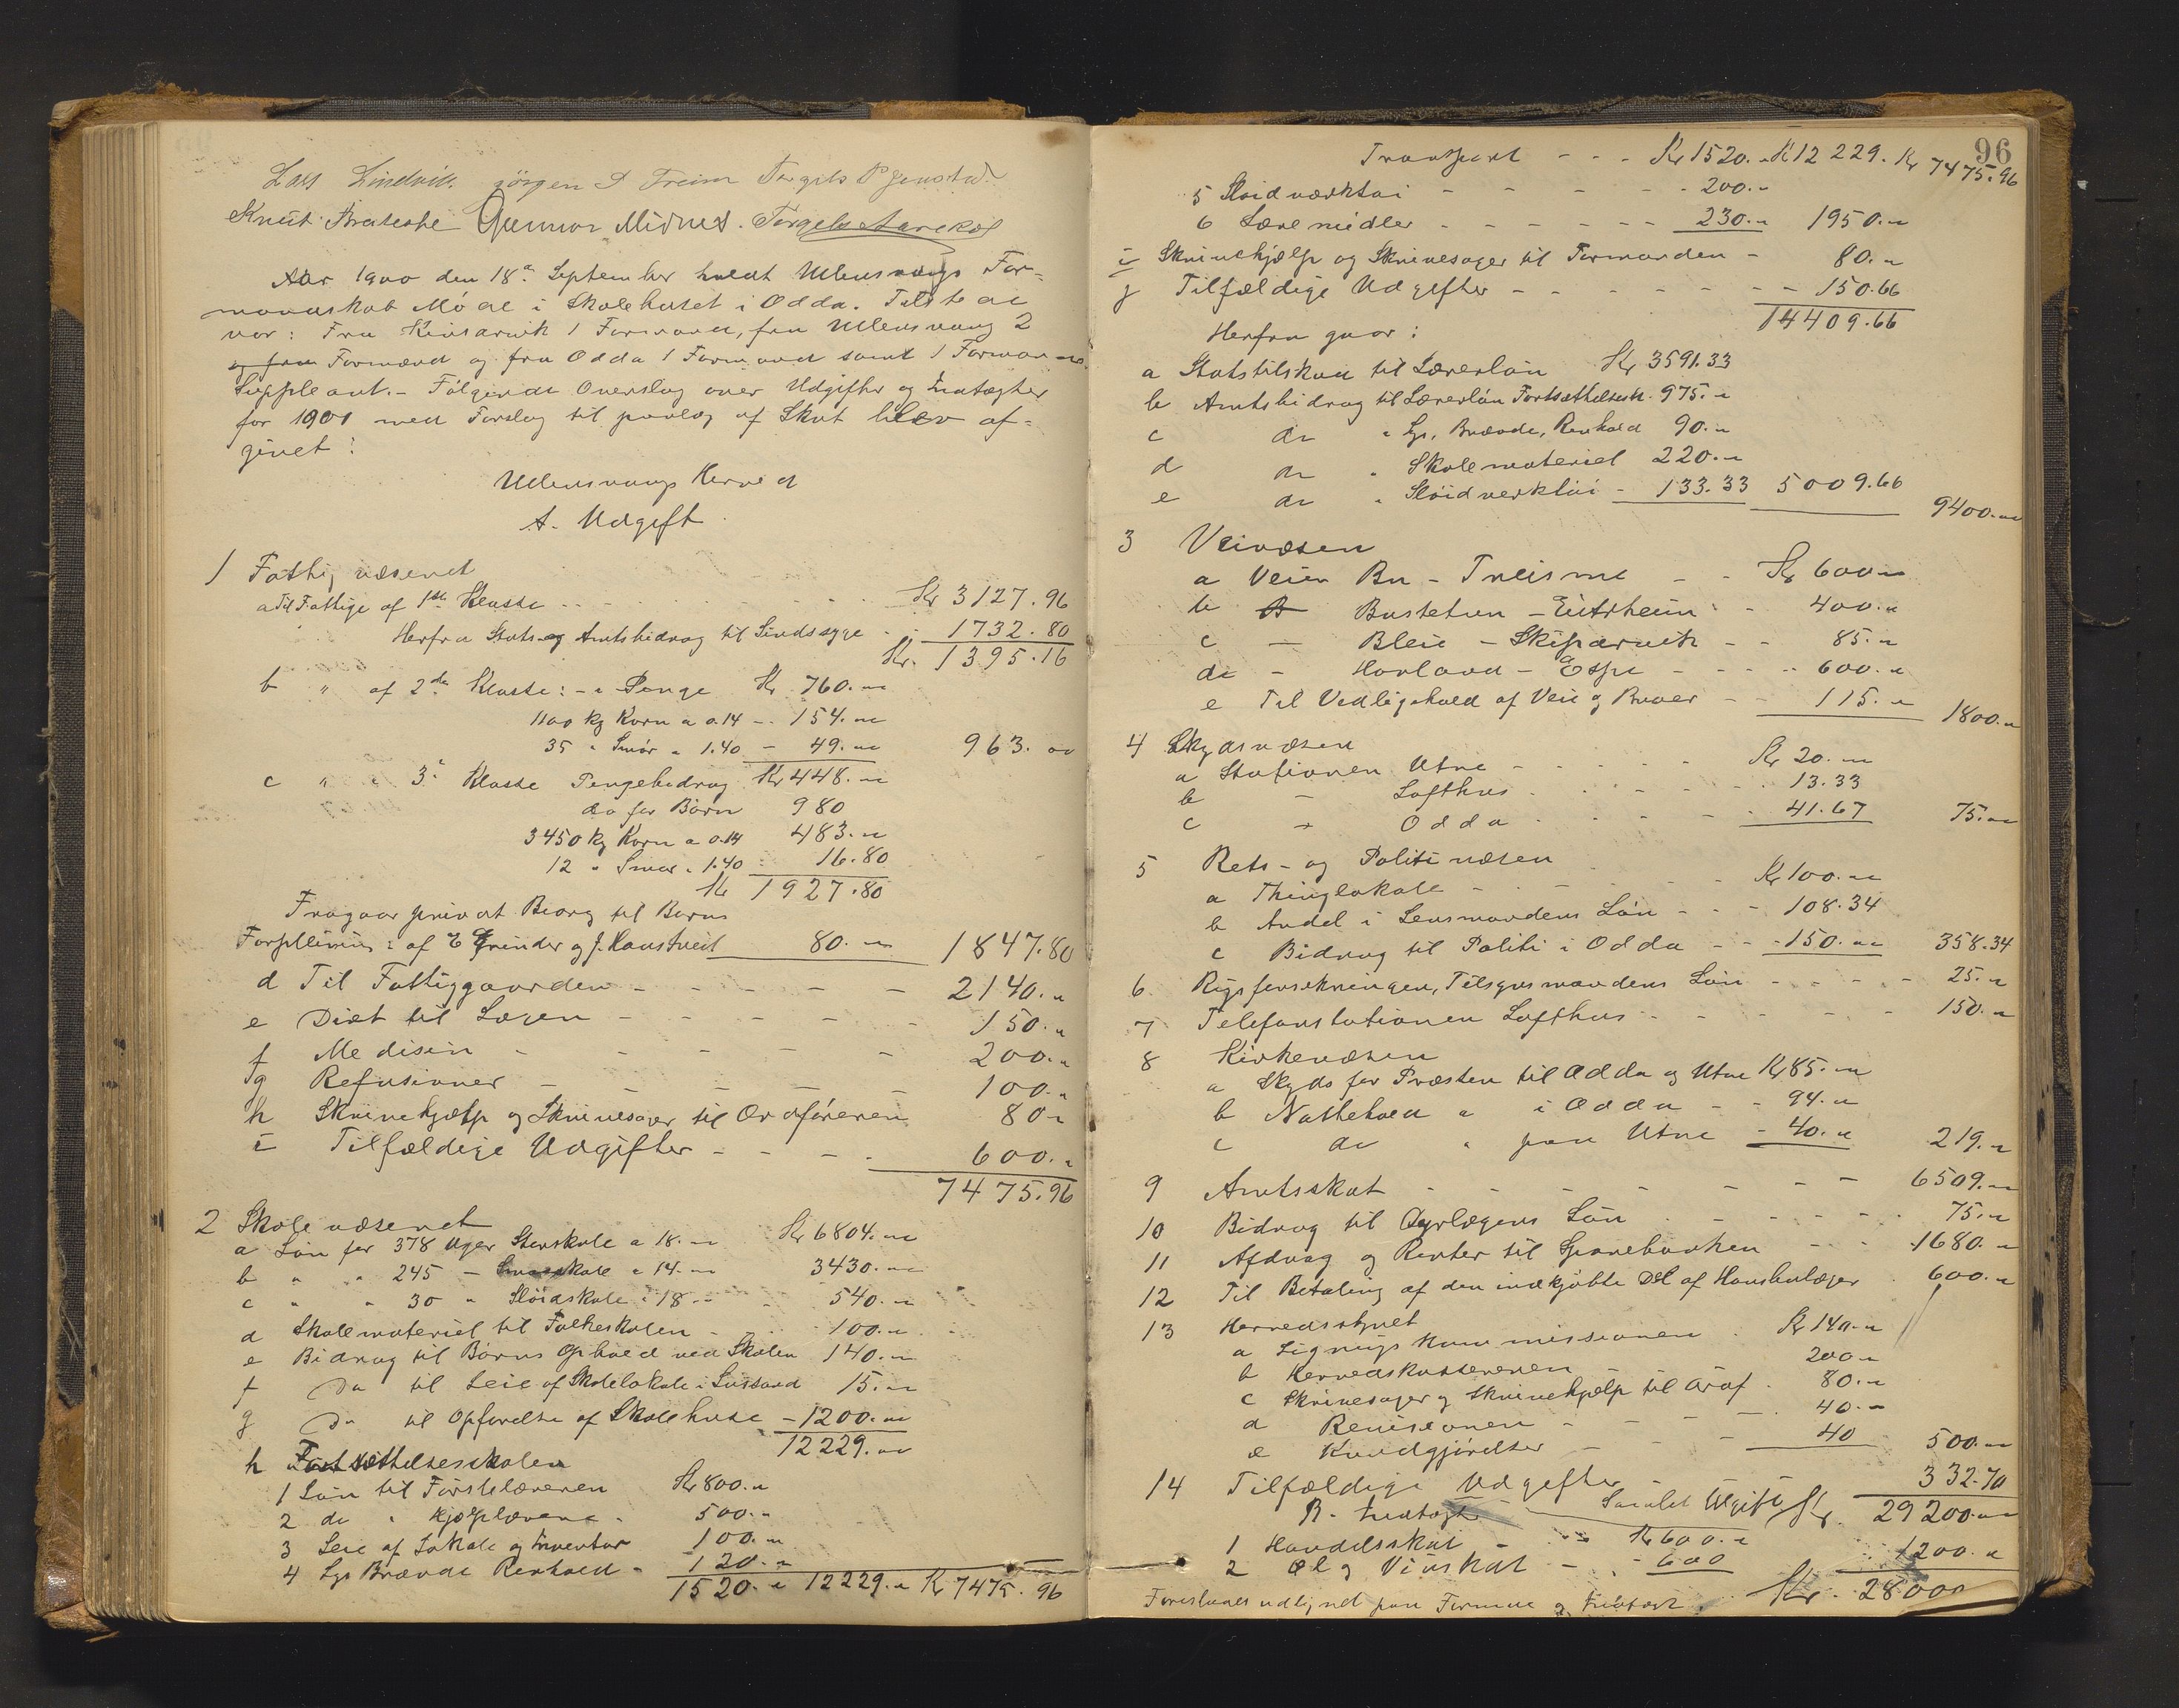 Lars Lindvik. Jörgen S Freim Torgils
Knut Bratespe Gunnar Midnes. Torgels Aarekol
Aar 1900 den 18de September holdt Ullensvangs For-
mandskab Møde i Skolehuset i Odda. Tilstede
var: Fra Kinsarvik 1 Formand, fra Ullensvang 2
og fra Formænd og fra Odda 1 Formand samt 1 Formands
Suppleant.- Følgende Overslag over Udgifter og Indtægter
for 1901 med Forslag til paalæg af Skat blev af-
givet:
Ullensvangs Herred
A. Udgift
1 Fattigvæsenet
a Til Fattige af 1ste Klasse - - - Kr 3127.96
Herfra Stats- og Amtsbidrag til Sindssyge - - 1732.80
Kr. 1395.16
b " af 2den Klasse: - a Penge Kr 760.00
1100 kg Korn a 0.14 - 154.00
35 " Smør a 1.40 - 49.00 963.00
c " 3die Klasse Pengebidrag Kr 448.00
do for Børn 980
3450 kg Korn a 0.14 483.00
12 " Smør a 1.40 16.80
Kr 1927.80
Fragaar privat Bidrag til Børns
Forpleining: af E Grinder og J. Haustveit 80.00 1847.80
d Til Fattiggaarden - - - - - 2140.00
e Diæt til Lægen - - - - - 150.00
f Medisin - - - - - 200.00
g Refusioner - - - - 100.00
h Skrivehjælp og Skrivesager til Ordføreren 80.00
i Tilfældige Udgifter - - - - 600.00
7475.96
2 Skolevæsenet
a Løn for 378 Uger Storskole a 18.00 Kr 6804.00
b " " 245 - Smaaskole a 14.00 3430.00
c " " 30 " Sløidskole a 18 - 540.00
d Skolemateriel til Folkeskolen - 100.00
e Bidrag til Børns Ophold ved Skolen 140.00
f Do til Leie af Skolelokale i 15.00
g Do til Opførelse af Skolehuse - 1200.00
12229.00
h Fortsættelsesskolen
1 Løn til Førstelæreren Kr 800.00
2 do " Hjælplærere - 500.00
3 Leie af Lokale og Inventar 100.00
4 Lys Brænde Renhold - 120.00
1520.00 12229.00 Kr 7475.96
96
Transport - - - Kr 1520.00 Kr 12229. Kr 7475.96
5 Sløidværktøi - - - - - 200.00
6 Læremidler - - - - - 230.00 1950.00
i Skrivehjælp og Skrivesager til Formanden - 80.00
j Tilfældige Udgifter - - - - - - - 150.66
14409.66
Herfra gaar:
a Statstilskud til Lærerløn Kr 3591.33
b Amtsbidrag til Lærerløn Fortsættelsessk. 975.00
c do " Lys, Brænde, Renhold 90.00
d do " Skolemateriel 220.00
e do " Sløidverktøi - 133.33 5009.66
9400.00
3 Veivæsen
a Veien Bu - Treisme - - Kr 600.00
b Bustetun - Eitrheim - - 400.00
c - Bleie - Skiparvik - - 85.00
d - Hovland - Espe - - - 600.00
e Til Vedligehold af Veie og Broer - - 115.00 1800.00
4 Skydsvæsen
a Stationen Utne - - - - - Kr 20.00
b - Lofthus - - - - - 13.33
c - Odda - - - - - 41.67 75.00
5 Rets- og Politivæsen
a Thinglokale - - - - - Kr 100.00
b Andel i Lensmandens Løn - - - 108.34
c Bidrag til Politi i Odda - - - 150.00 358.34
6 Rigsforsikringen, Tilsynsmandens Løn - - - - 25.00
7 Telefonstationen Lofthus - - - - - 150.00
8 Kirkevæsen
a Skyds for Præsten til Odda og Utne Kr 85.00
b Nattehold " i Odda - - 94.00
c do " paa Utne - 40.00 219.00
9 Amtsskat - - - - - - - 6509.00
10 Bidrag til Dyrlægens Løn - - - - - 75.00
11 Afdrag og Renter til Sparebanken - - - 1680.00
12 Til Betaling af den indkjøbte Del af 600.00
13 Herredsstyret
a Ligningskommissionen - Kr 140.00
b Herredskassereren - 200.00
c Skrivesager og Skrivehjælp til Ordf. 80.00
d Revisionen - - - - 40.00
e Kundgjørelser - - - 40 500.00
14 Tilfældige Udgifter - 332.70
Samlet Udgift Kr. 29200.00
B. Indtægt
1 Handelsskat - - - Kr 600.00
2 Øl og Vinskat - - 600 1200.00
Foreslaaes udlignet paa Formue og Indtægt. Kr. 28000